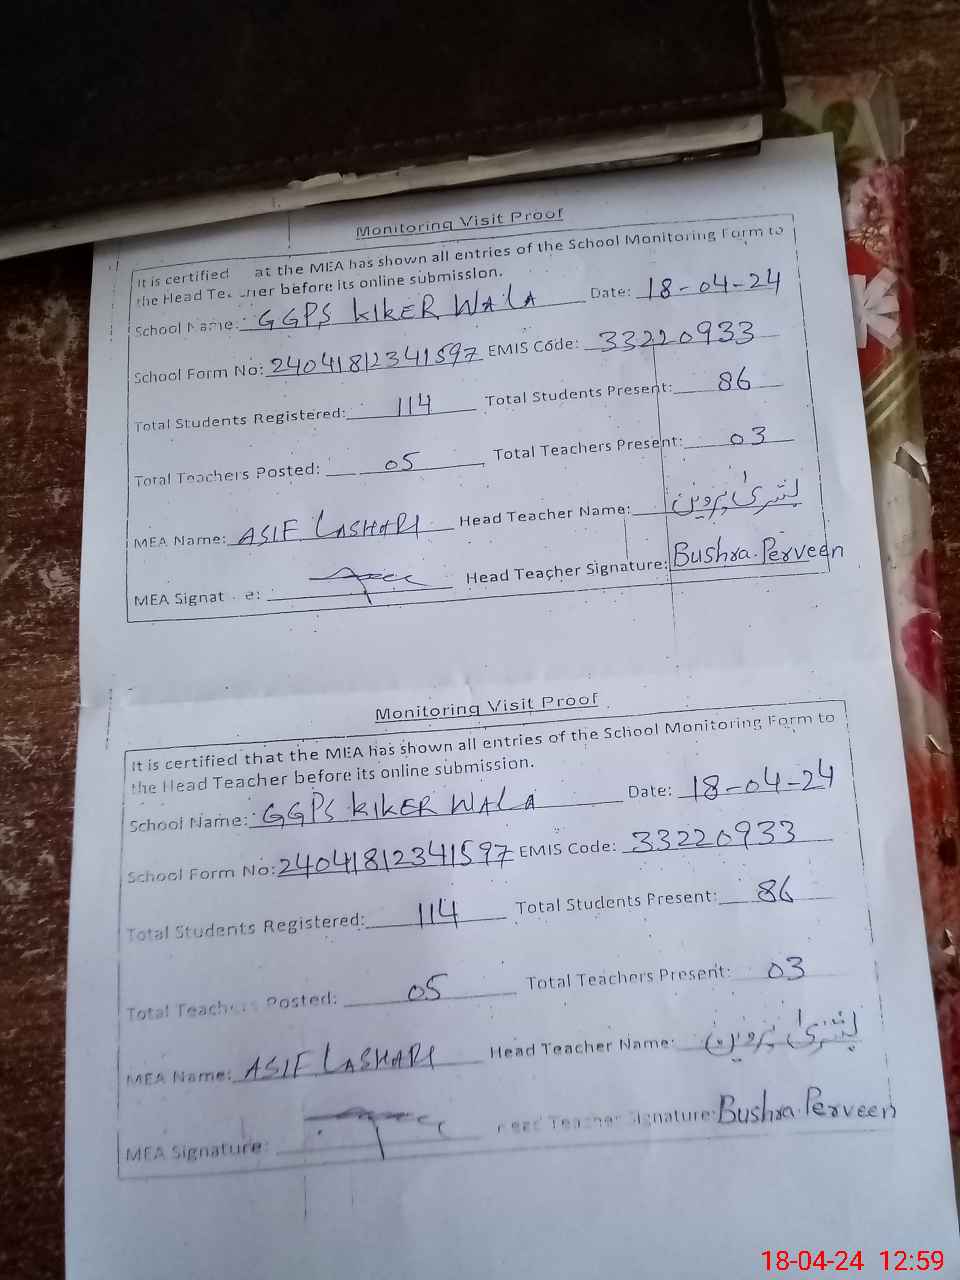 Monitoring Visit Proof
It is certified at the MEA has shown all entries of the School Monitoring Form to
the Head Teacher before its online submission.
School Name: GGPS KIKER WALA Date: 18-04-24
School Form No: 24041812341597 EMIS Code: 33220933
Total Students Registered: 114 Total Students Present: 86
Total Teachers Posted: 05 Total Teachers Present: 03
MEA Name: ASIF LASHARI Head Teacher Name: بشریٰ پروین
MEA Signat e: Head Teacher Signature: Bushra Perveen
Monitoring Visit Proof
It is certified that the MEA has shown all entries of the School Monitoring Form to
the Head Teacher before its online submission.
School Name: GGPS KIKER WALA Date: 18-04-24
School Form No: 24041812341597 EMIS Code: 33220933
Total Students Registered: 114 Total Students Present: 86
Total Teachers Posted: 05 Total Teachers Present: 03
MEA Name: ASIF LASHARI Head Teacher Name: بشریٰ پروین
MEA Signature: Head Teacher Signature: Bushra Perveen
18-04-24 12:59